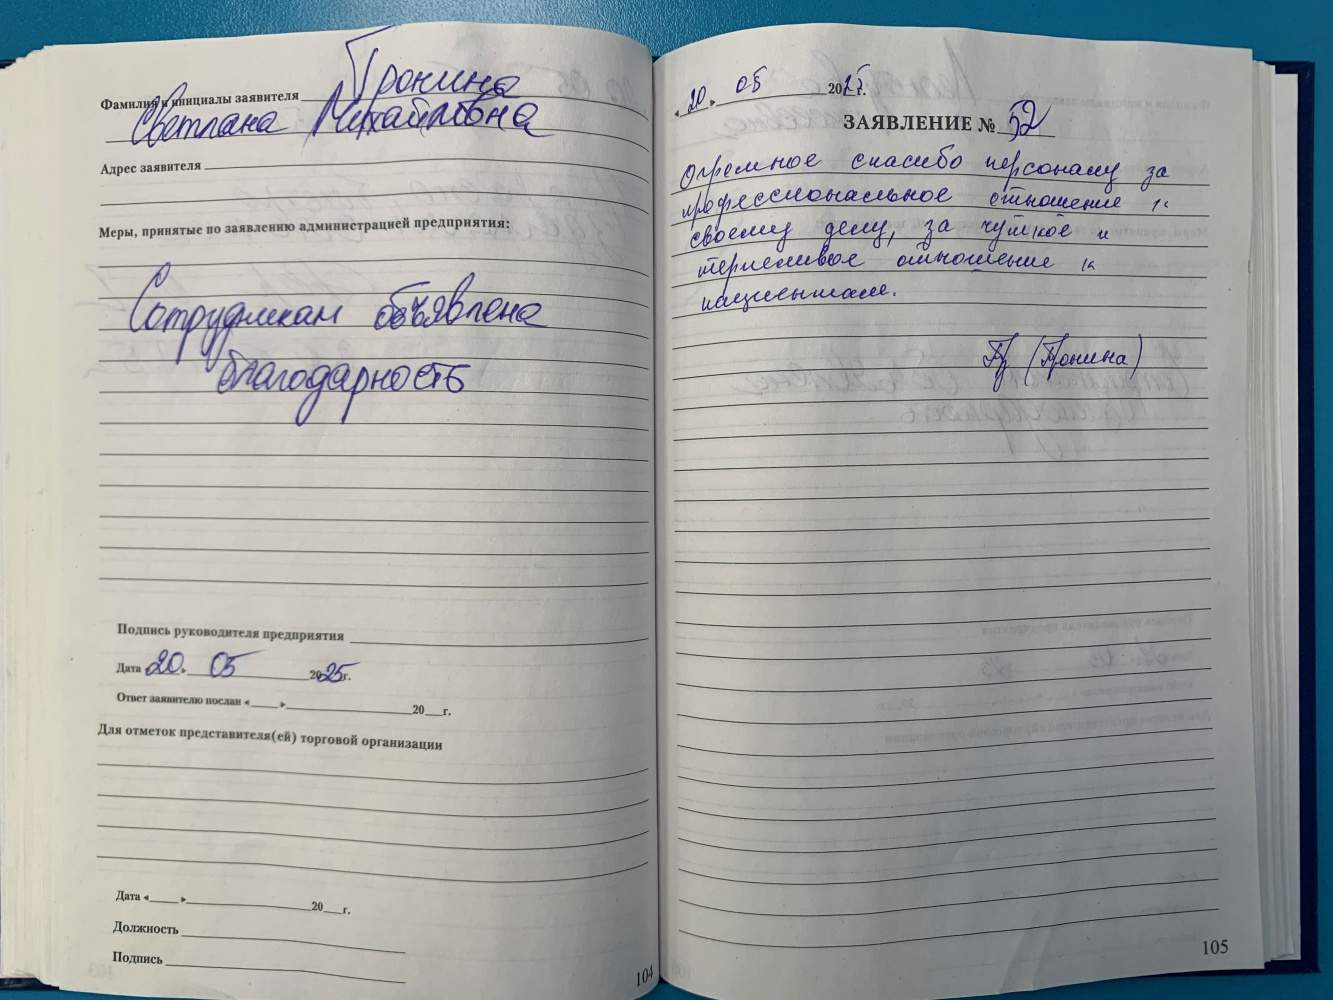 Фамилия и инициалы заявителя Пронина
Светлана Михайловна
Адрес заявителя
Меры, принятые по заявлению администрацией предприятия:
Сотрудникам объявлена
благодарность
Подпись руководителя предприятия
Дата 20 » 05 2025г.
Ответ заявителю послан «____ » ____ 20___г.
Для отметок представителя(ей) торговой организации
Дата «____ » ____ 20___г.
Должность
Подпись
104
« 20 » 05 2025г.
ЗАЯВЛЕНИЕ № 52
Огромное спасибо персоналу за
профессиональное отношение к
своему делу, за чуткое и
терпеливое отношение к
пациентам.
(Пронина)
105